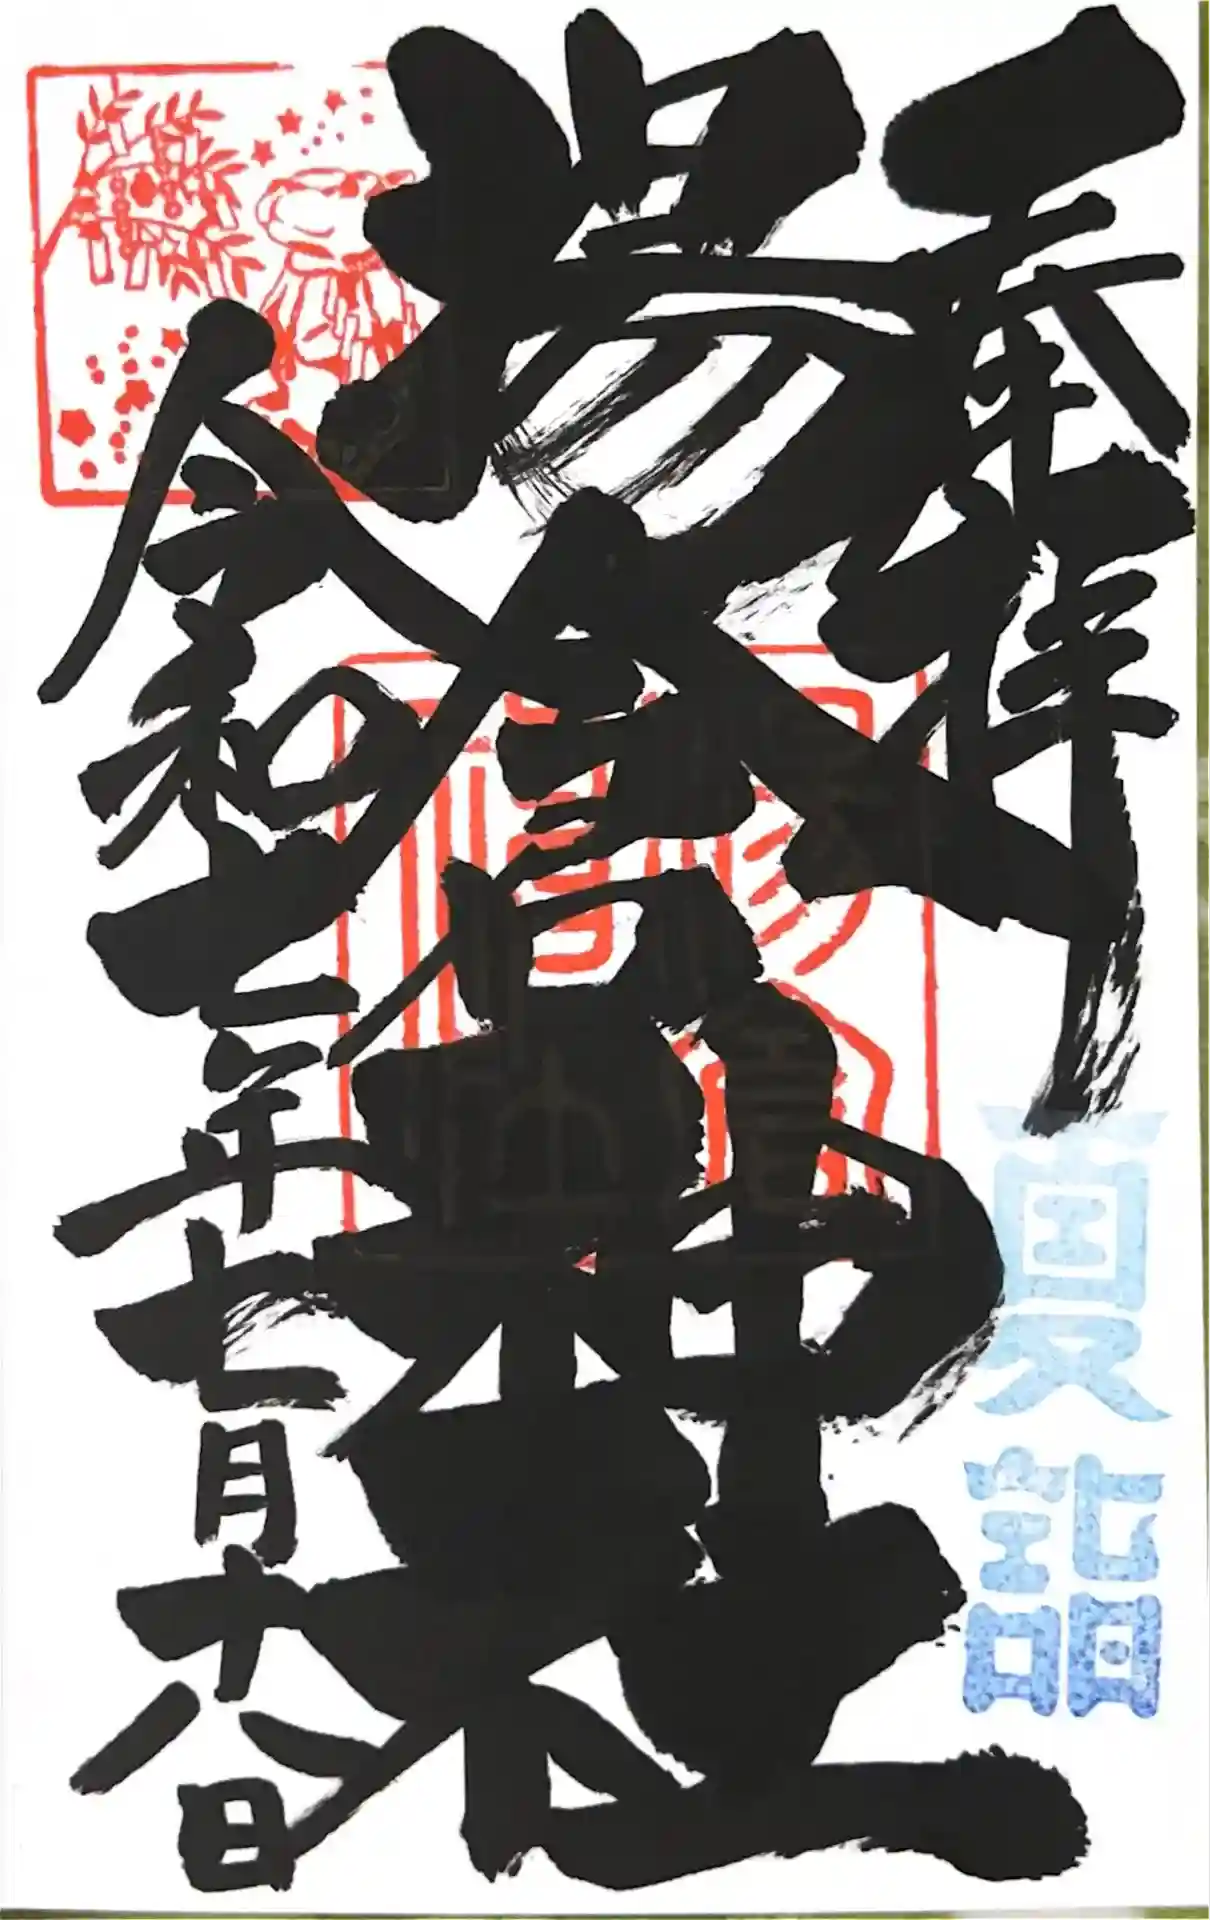 奉拝
夏詣
湯倉神社
令和七年七月十八日